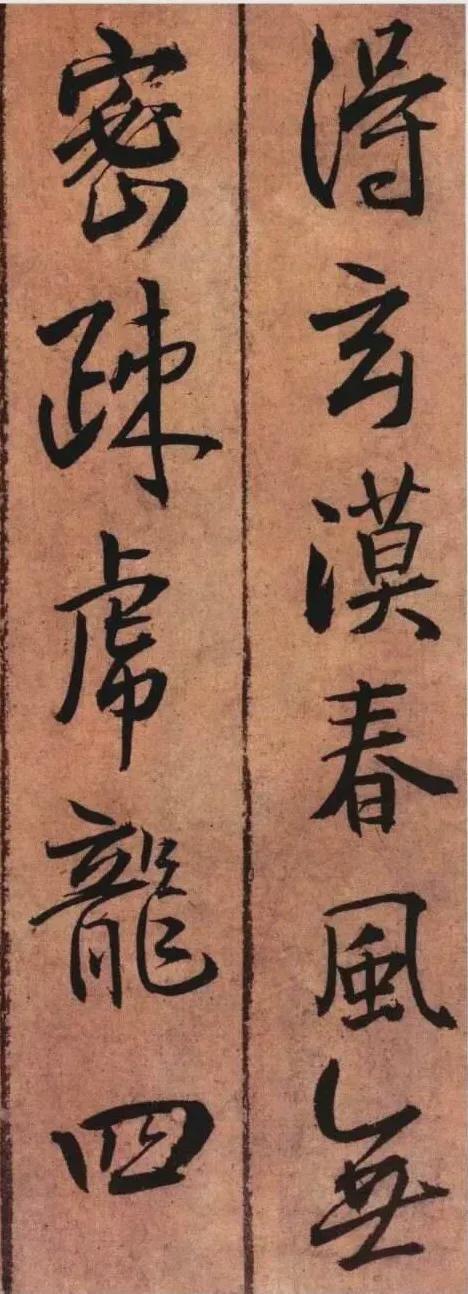 得玄漠春風無
密疎虎龍四